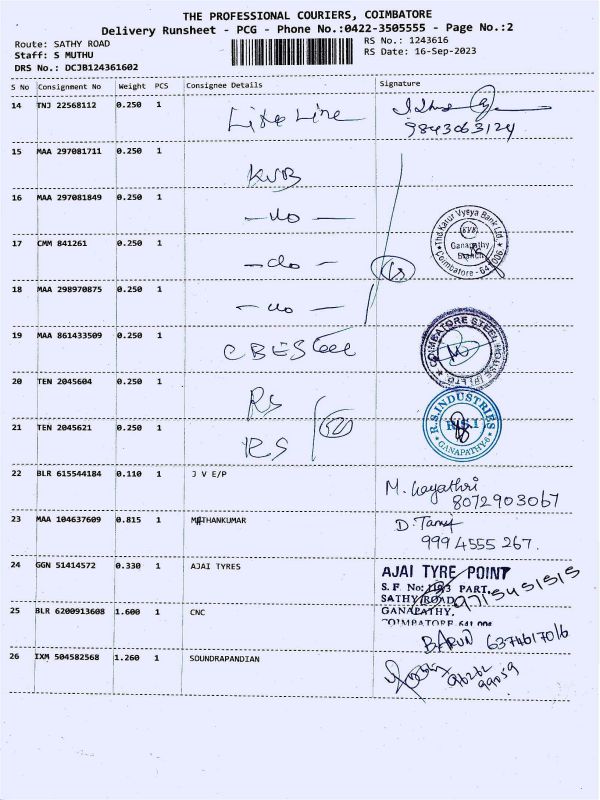 THE PROFESSIONAL COURIERS, COIMBATORE
Delivery Runsheet - PCG - Phone No.:0422-3505555 - Page No.:2
Route: SATHY ROAD
Staff: S MUTHU
DRS No.: DCJB124361602
RS No.: 1243616
RS Date: 16-Sep-2023
S No Consignment No Weight PCS Consignee Details Signature
14 TNJ 22568112 0.250 1 Life Line
9843063124
15 MAA 297081711 0.250 1 KVB
16 MAA 297081849 0.250 1 - do -
17 CMM 841261 0.250 1 - do -
18 MAA 298970875 0.250 1 - do -
The Karur Vysya Bank Ltd.
KVB
Ganapathy
Branch
Coimbatore - 641 006
19 MAA 861433509 0.250 1 CBE Steel
COIMBATORE STEEL HOUSE
20 TEN 2045604 0.250 1 RS
21 TEN 2045621 0.250 1 RS
R.S. INDUSTRIES
R.S.I
GANAPATHY-6
22 BLR 615544184 0.110 1 J V E/P M. Gayathri
8072903067
23 MAA 104637609 0.815 1 MATHANKUMAR D.
9994555267.
24 GGN 51414572 0.330 1 AJAI TYRES AJAI TYRE POINT
S. F. No: PART,
SATHY ROAD
GANAPATHY,
9715451515
25 BLR 6200913608 1.600 1 CNC
COIMBATORE
BARUN 6374617016
26 IXM 504582568 1.260 1 SOUNDRAPANDIAN
96262
99059